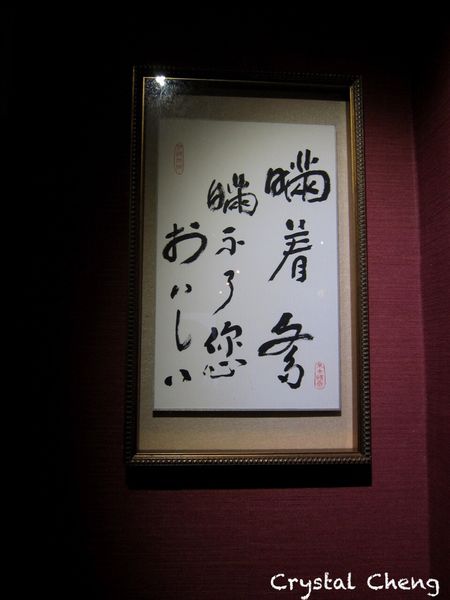 瞞着爹
瞞不了您
おいしい
Crystal Cheng